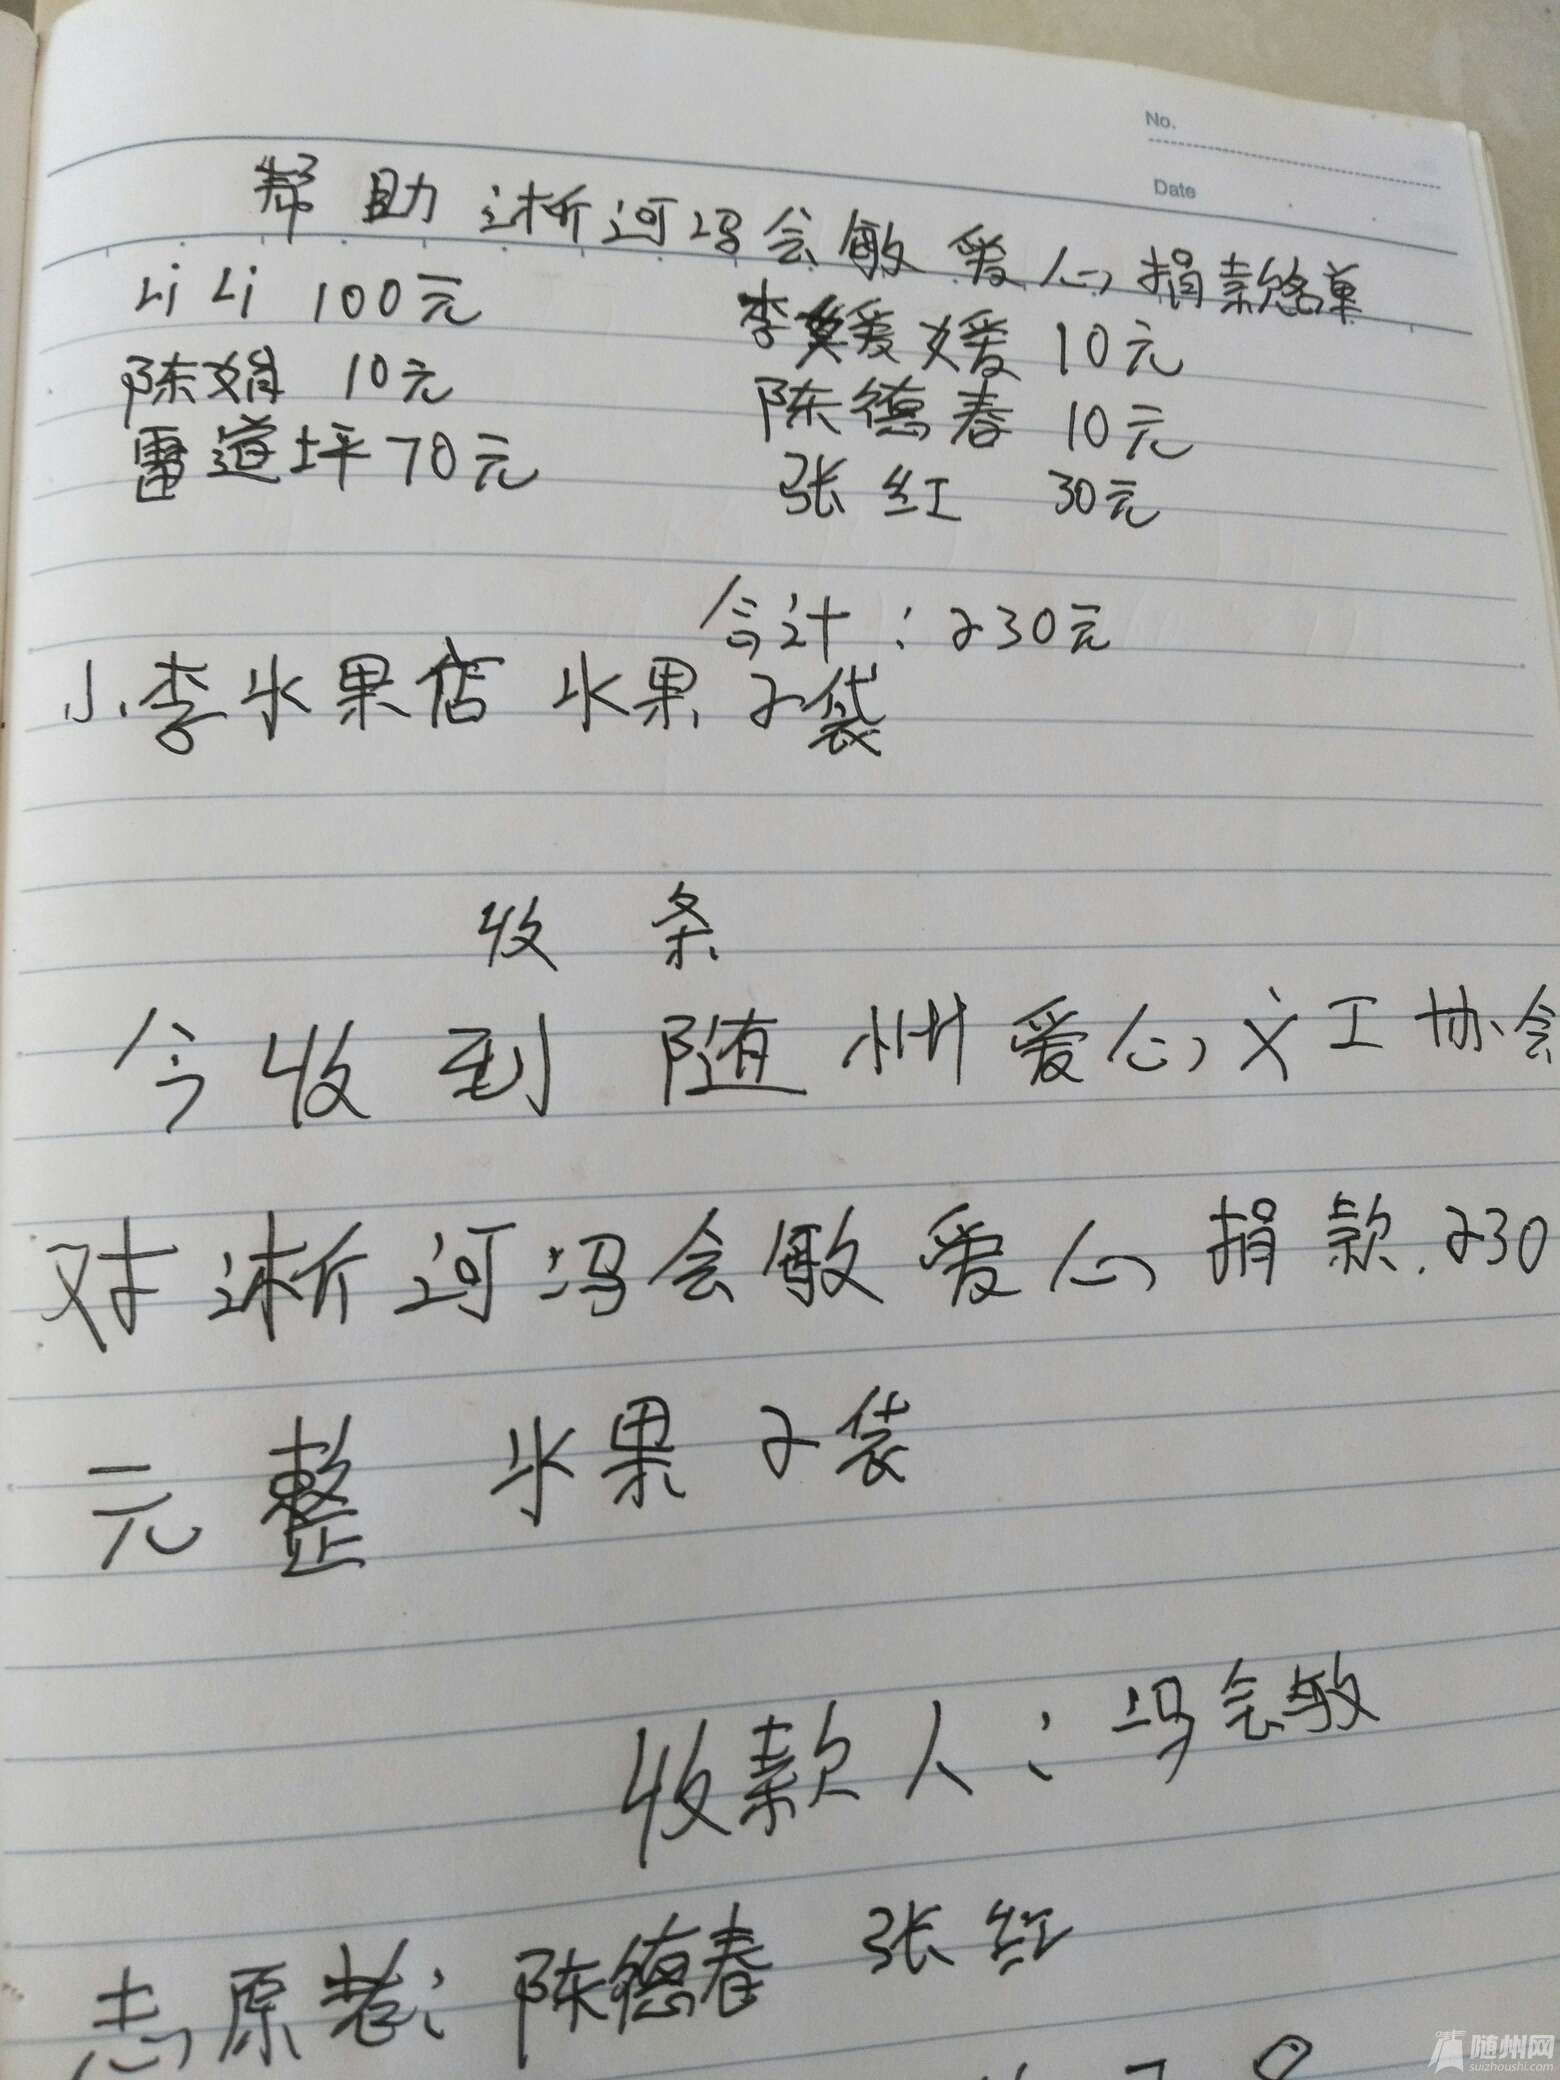 No.
Date
帮助淅河冯会敏爱心捐款名单
Li Li 100元 李媛媛 10元
陈娟 10元 陈德春 10元
雷道坪 70元 张红 30元
合计:230元
小李水果店 水果2袋
收条
今收到随州爱心义工协会
对淅河冯会敏爱心捐款.230
元整 水果2袋
收款人:冯会敏
志原者:陈德春 张红
随州网
suizhoushi.com